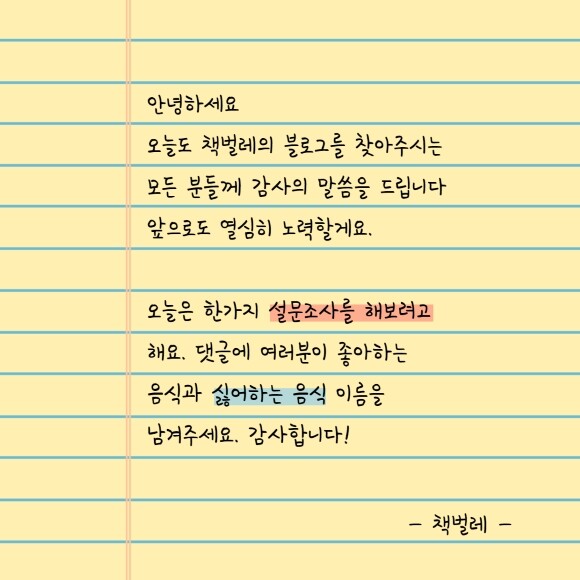 안녕하세요
오늘도 책벌레의 블로그를 찾아주시는
모든 분들께 감사의 말씀을 드립니다
앞으로도 열심히 노력할게요.
오늘은 한가지 설문조사를 해보려고
해요. 댓글에 여러분이 좋아하는
음식과 싫어하는 음식 이름을
남겨주세요. 감사합니다!
- 책벌레 -